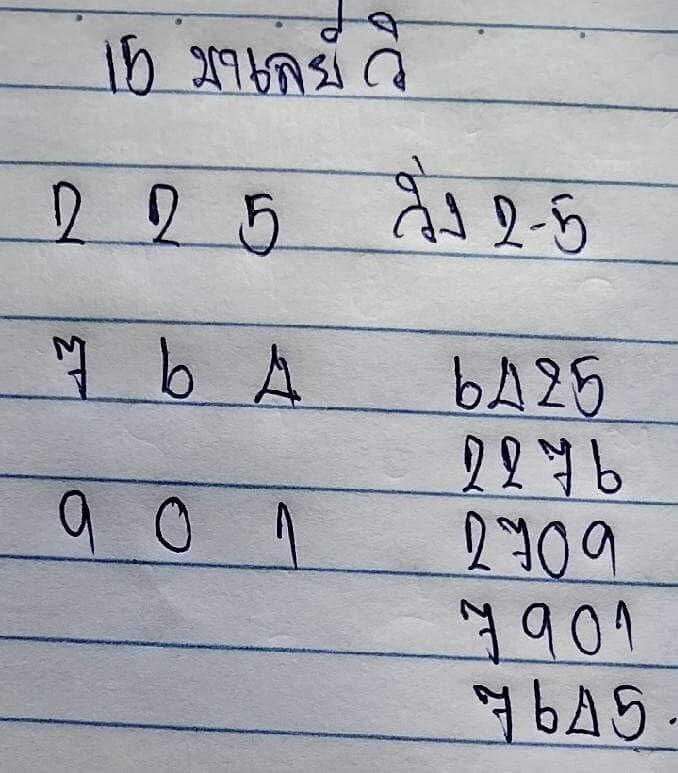 15 มาเลย์ วิ
2 2 5 วิ่ง 2-5
7 6 4 6425
2276
9 0 1 2709
7901
7645.